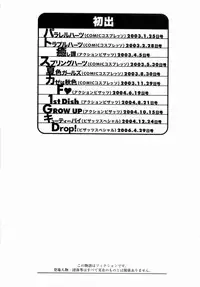 初出
パラレルハーツ(COMICコスプレッツ)2003.1.25日号
トラブルハーツ(COMICコスプレッツ)2003.3.28日号
癒し課(アクションピザッツ)2003.4.5日号
スプリングハーツ(COMICコスプレッツ)2003.5.30日号
草色ガールズ(COMICコスプレッツ)2003.8.30日号
カゼは秋色(COMICコスプレッツ)2003.11.29日号
F♥(アクションピザッツ)2004.6.19日号
1st Dish(アクションピザッツ)2004.8.21日号
GROW UP(アクションピザッツ)2004.10.15日号
キューティーパイ(ピザッツスペシャル)2004.12.24日号
Drop!(ピザッツスペシャル)2006.4.29日号
この物語はフィクションです。
登場人物・団体等はすべて実在のものとは関係ありません。